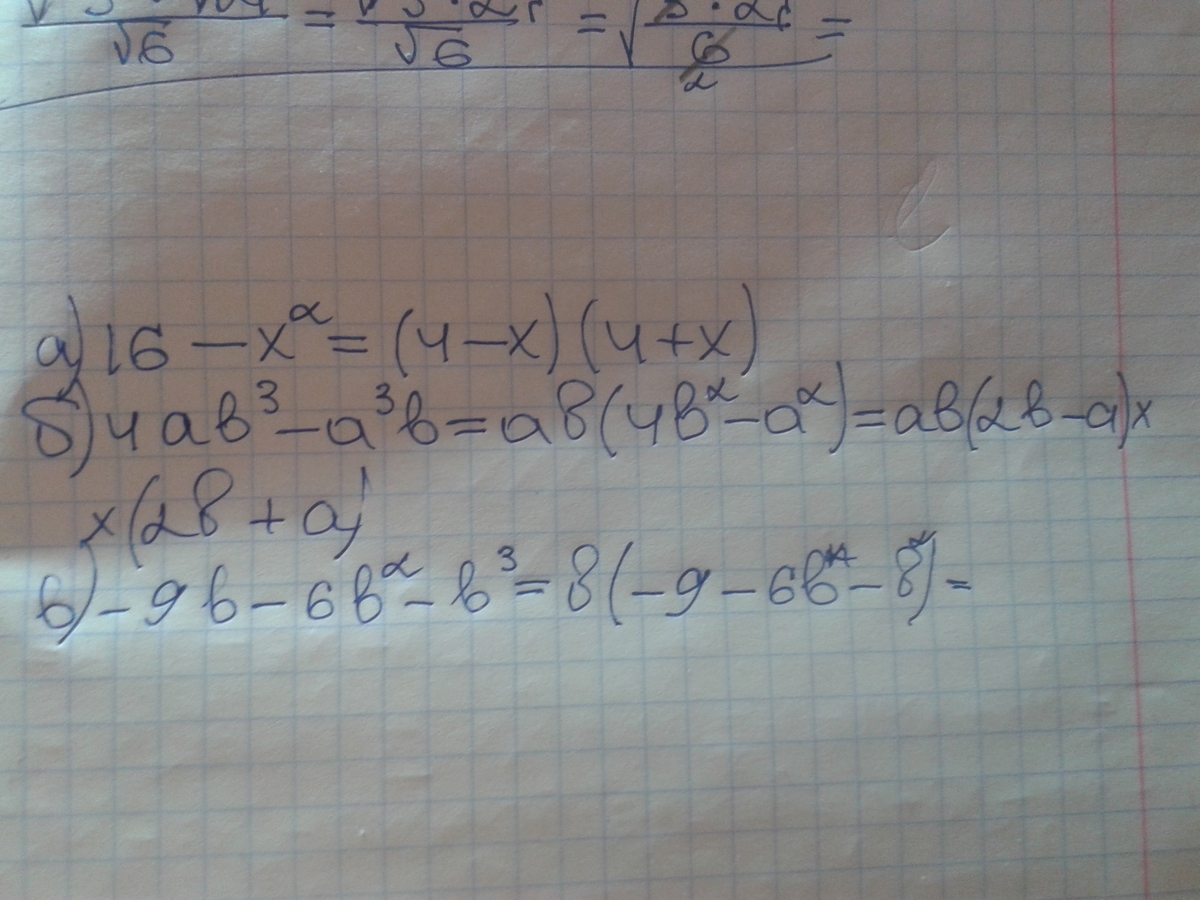 √6 = √6 = √6 =
2
а) 16 − x² = (4 − x)(4 + x)
б) 4ab³ − a³b = ab(4b² − a²) = ab(2b − a)×
×(2b + a)
в) −9b − 6b² − b³ = b(−9 − 6b − b²) =